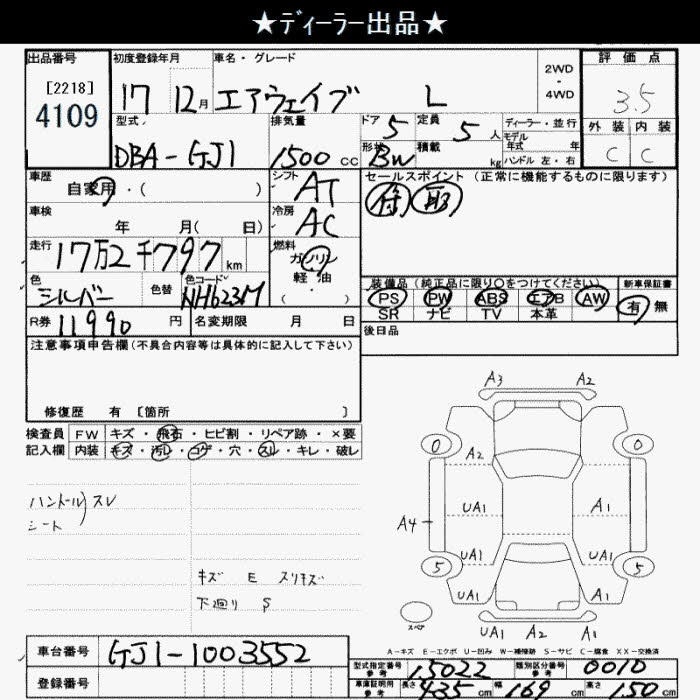 ★ディーラー出品★
出品番号
[2218]
4109
初度登録年月
17 12月
車名・グレード
エアウェイブ L
2WD
・
4WD
評価点
3.5
外装 内装
C C
型式
DBA-GJ1
排気量
1500 cc
ドア 5
定員 5 人
形状 BW
積載 kg
ディーラー・並行
モデル
年式 年
ハンドル 左・右
車歴
自家用・( )
シフト AT
セールスポイント (正常に機能するものに限ります)
保 取
車検
年 月( 日)
冷房 AC
走行
17万2千797 km
燃料
ガソリン
軽油
( )
色
シルバー
色替
色コード
NH623M
装備品(純正品に限り○をつけてください)
PS PW ABS エアB AW
SR ナビ TV 本革
新車保証書
有 無
R券 11990 円
名変期限 月 日
後日品
注意事項申告欄(不具合内容等は具体的に記入して下さい)
修復歴 有 [箇所 ]
検査員
記入欄
FW キズ・飛石・ヒビ割・リペア跡・×要
内装 キズ・汚レ・コゲ・穴・スレ・キレ・破レ
ハンドル スレ
シート
キズ E スリキズ
下廻り S
A3 A2
0 0
A2
UA1 A1
A4
UA1 UA1
5 5
UA1 A2 A1
A1
スペア
A-キズ E-エクボ U-凹み W-補修跡 S-サビ C-腐食 XX-交換済
車台番号 GJ1-1003552
登録番号
型式指定番号
参考
15022
類別区分番号
参考
0010
車庫証明用
参考
長さ 435 cm
幅 169 cm
高さ 150 cm